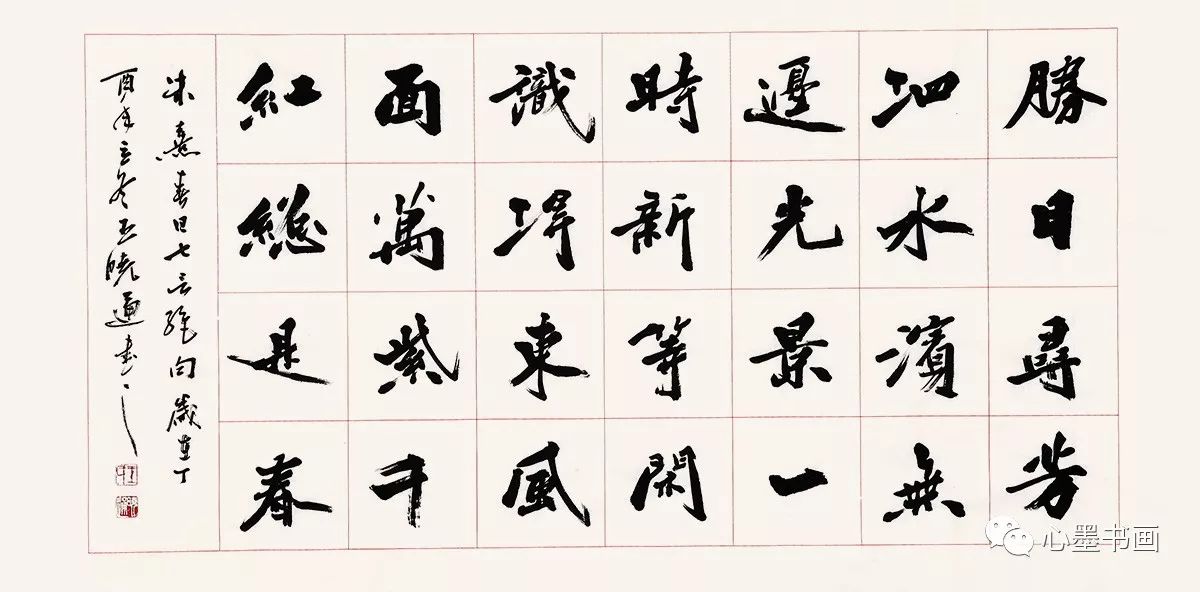 勝日尋芳
泗水濱無
邊光景一
時新等閑
識得東風
面萬紫千
紅總是春
朱熹春日七言絕句歲在丁
酉年立冬王曉通書之
心墨书画